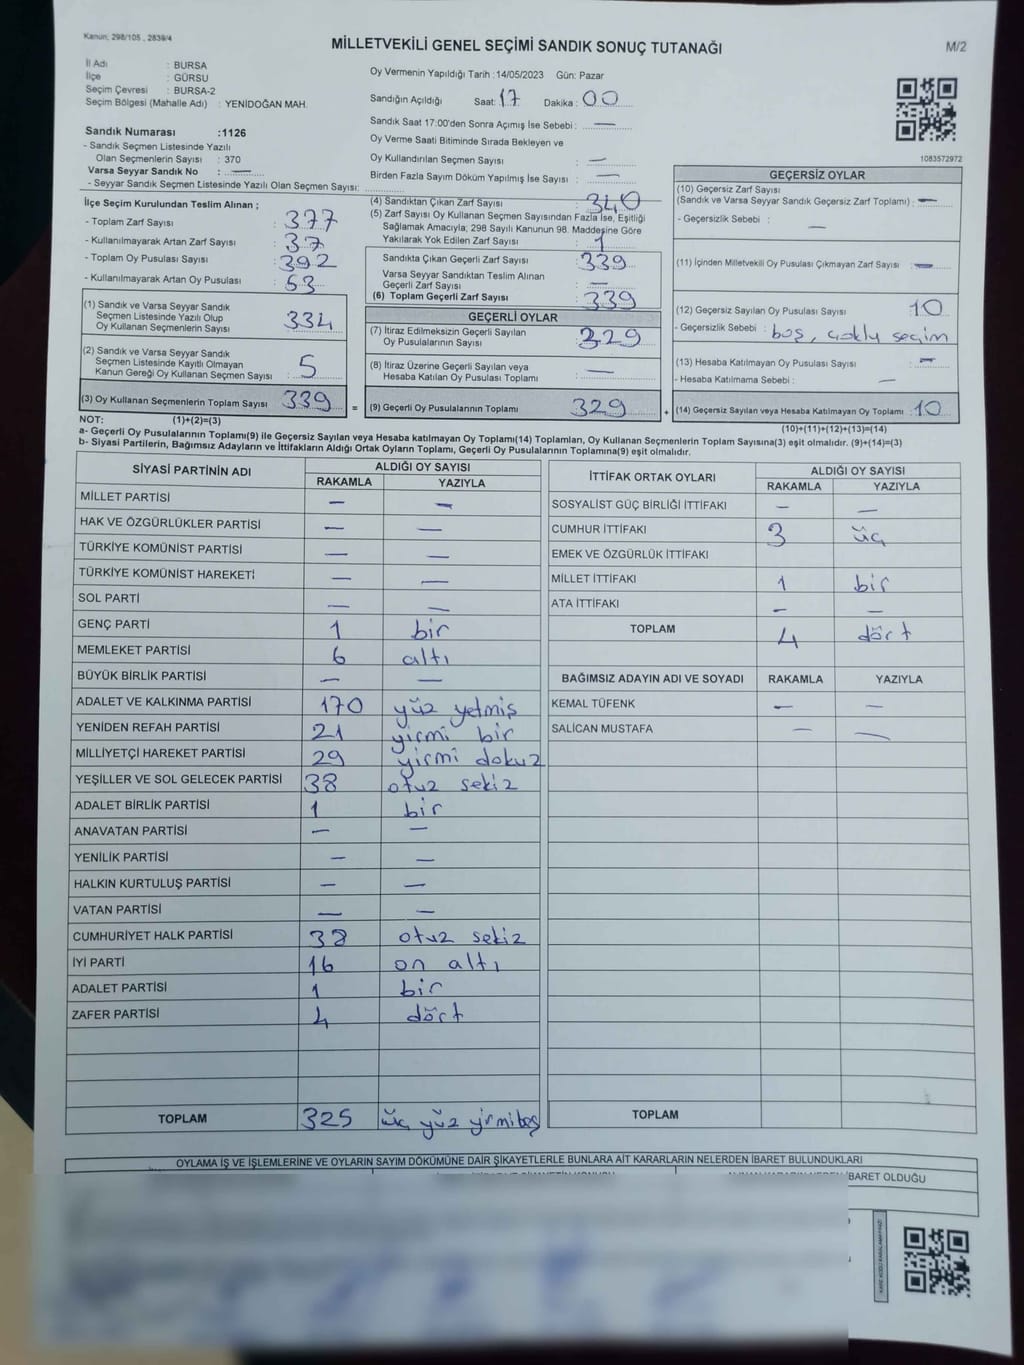 Kanun, 298/105 , 2839/4
MİLLETVEKİLİ GENEL SEÇİMİ SANDIK SONUÇ TUTANAĞI
M/2
İl Adı : BURSA
İlçe : GÜRSU
Seçim Çevresi : BURSA-2
Seçim Bölgesi (Mahalle Adı) : YENİDOĞAN MAH.
Sandık Numarası :1126
- Sandık Seçmen Listesinde Yazılı
Olan Seçmenlerin Sayısı : 370
Varsa Seyyar Sandık No : —
- Seyyar Sandık Seçmen Listesinde Yazılı Olan Seçmen Sayısı:
Oy Vermenin Yapıldığı Tarih :14/05/2023 Gün: Pazar
Sandığın Açıldığı Saat: 17 Dakika : 00
Sandık Saat 17:00'den Sonra Açımış İse Sebebi : —
Oy Verme Saati Bitiminde Sırada Bekleyen ve
Oy Kullandırılan Seçmen Sayısı : —
Birden Fazla Sayım Döküm Yapılmış İse Sayısı : —
1083572972
İlçe Seçim Kurulundan Teslim Alınan ;
- Toplam Zarf Sayısı : 377
- Kullanılmayarak Artan Zarf Sayısı : 37
- Toplam Oy Pusulası Sayısı : 392
- Kullanılmayarak Artan Oy Pusulası : 53
(1) Sandık ve Varsa Seyyar Sandık
Seçmen Listesinde Yazılı Olup
Oy Kullanan Seçmenlerin Sayısı : 334
(2) Sandık ve Varsa Seyyar Sandık
Seçmen Listesinde Kayıtlı Olmayan
Kanun Gereği Oy Kullanan Seçmen Sayısı : 5
(3) Oy Kullanan Seçmenlerin Toplam Sayısı : 339 =
(4) Sandıktan Çıkan Zarf Sayısı : 340
(5) Zarf Sayısı Oy Kullanan Seçmen Sayısından Fazla İse, Eşitliği
Sağlamak Amacıyla; 298 Sayılı Kanunun 98. Maddesine Göre
Yakılarak Yok Edilen Zarf Sayısı : 1
Sandıkta Çıkan Geçerli Zarf Sayısı : 339
Varsa Seyyar Sandıktan Teslim Alınan
Geçerli Zarf Sayısı : —
(6) Toplam Geçerli Zarf Sayısı : 339
GEÇERLİ OYLAR
(7) İtiraz Edilmeksizin Geçerli Sayılan
Oy Pusulalarının Sayısı : 329
(8) İtiraz Üzerine Geçerli Sayılan veya
Hesaba Katılan Oy Pusulası Toplamı : —
(9) Geçerli Oy Pusulalarının Toplamı : 329 +
GEÇERSİZ OYLAR
(10) Geçersiz Zarf Sayısı
(Sandık ve Varsa Seyyar Sandık Geçersiz Zarf Toplamı) : —
- Geçersizlik Sebebi : —
(11) İçinden Milletvekili Oy Pusulası Çıkmayan Zarf Sayısı : —
(12) Geçersiz Sayılan Oy Pusulası Sayısı : 10
- Geçersizlik Sebebi : boş, çoklu seçim
(13) Hesaba Katılmayan Oy Pusulası Sayısı : —
- Hesaba Katılmama Sebebi : —
(14) Geçersiz Sayılan veya Hesaba Katılmayan Oy Toplamı : 10
NOT: (1)+(2)=(3) (10)+(11)+(12)+(13)=(14)
a- Geçerli Oy Pusulalarının Toplamı(9) ile Geçersiz Sayılan veya Hesaba katılmayan Oy Toplamı(14) Toplamları, Oy Kullanan Seçmenlerin Toplam Sayısına(3) eşit olmalıdır. (9)+(14)=(3)
b- Siyasi Partilerin, Bağımsız Adayların ve İttifakların Aldığı Ortak Oyların Toplamı, Geçerli Oy Pusulalarının Toplamına(9) eşit olmalıdır.
SİYASİ PARTİNİN ADI ALDIĞI OY SAYISI
RAKAMLA YAZIYLA
MİLLET PARTİSİ — —
HAK VE ÖZGÜRLÜKLER PARTİSİ — —
TÜRKİYE KOMÜNİST PARTİSİ — —
TÜRKİYE KOMÜNİST HAREKETİ — —
SOL PARTİ — —
GENÇ PARTİ 1 bir
MEMLEKET PARTİSİ 6 altı
BÜYÜK BİRLİK PARTİSİ — —
ADALET VE KALKINMA PARTİSİ 170 yüz yetmiş
YENİDEN REFAH PARTİSİ 21 yirmi bir
MİLLİYETÇİ HAREKET PARTİSİ 29 yirmi dokuz
YEŞİLLER VE SOL GELECEK PARTİSİ 38 otuz sekiz
ADALET BİRLİK PARTİSİ 1 bir
ANAVATAN PARTİSİ — —
YENİLİK PARTİSİ — —
HALKIN KURTULUŞ PARTİSİ — —
VATAN PARTİSİ — —
CUMHURİYET HALK PARTİSİ 38 otuz sekiz
İYİ PARTİ 16 on altı
ADALET PARTİSİ 1 bir
ZAFER PARTİSİ 4 dört
TOPLAM 325 üç yüz yirmi beş
İTTİFAK ORTAK OYLARI ALDIĞI OY SAYISI
RAKAMLA YAZIYLA
SOSYALİST GÜÇ BİRLİĞİ İTTİFAKI — —
CUMHUR İTTİFAKI 3 üç
EMEK VE ÖZGÜRLÜK İTTİFAKI
MİLLET İTTİFAKI 1 bir
ATA İTTİFAKI — —
TOPLAM 4 dört
BAĞIMSIZ ADAYIN ADI VE SOYADI RAKAMLA YAZIYLA
KEMAL TÜFENK — —
SALİCAN MUSTAFA — —
TOPLAM
OYLAMA İŞ VE İŞLEMLERİNE VE OYLARIN SAYIM DÖKÜMÜNE DAİR ŞİKAYETLERLE BUNLARA AİT KARARLARIN NELERDEN İBARET BULUNDUKLARI
İBARET OLDUĞU